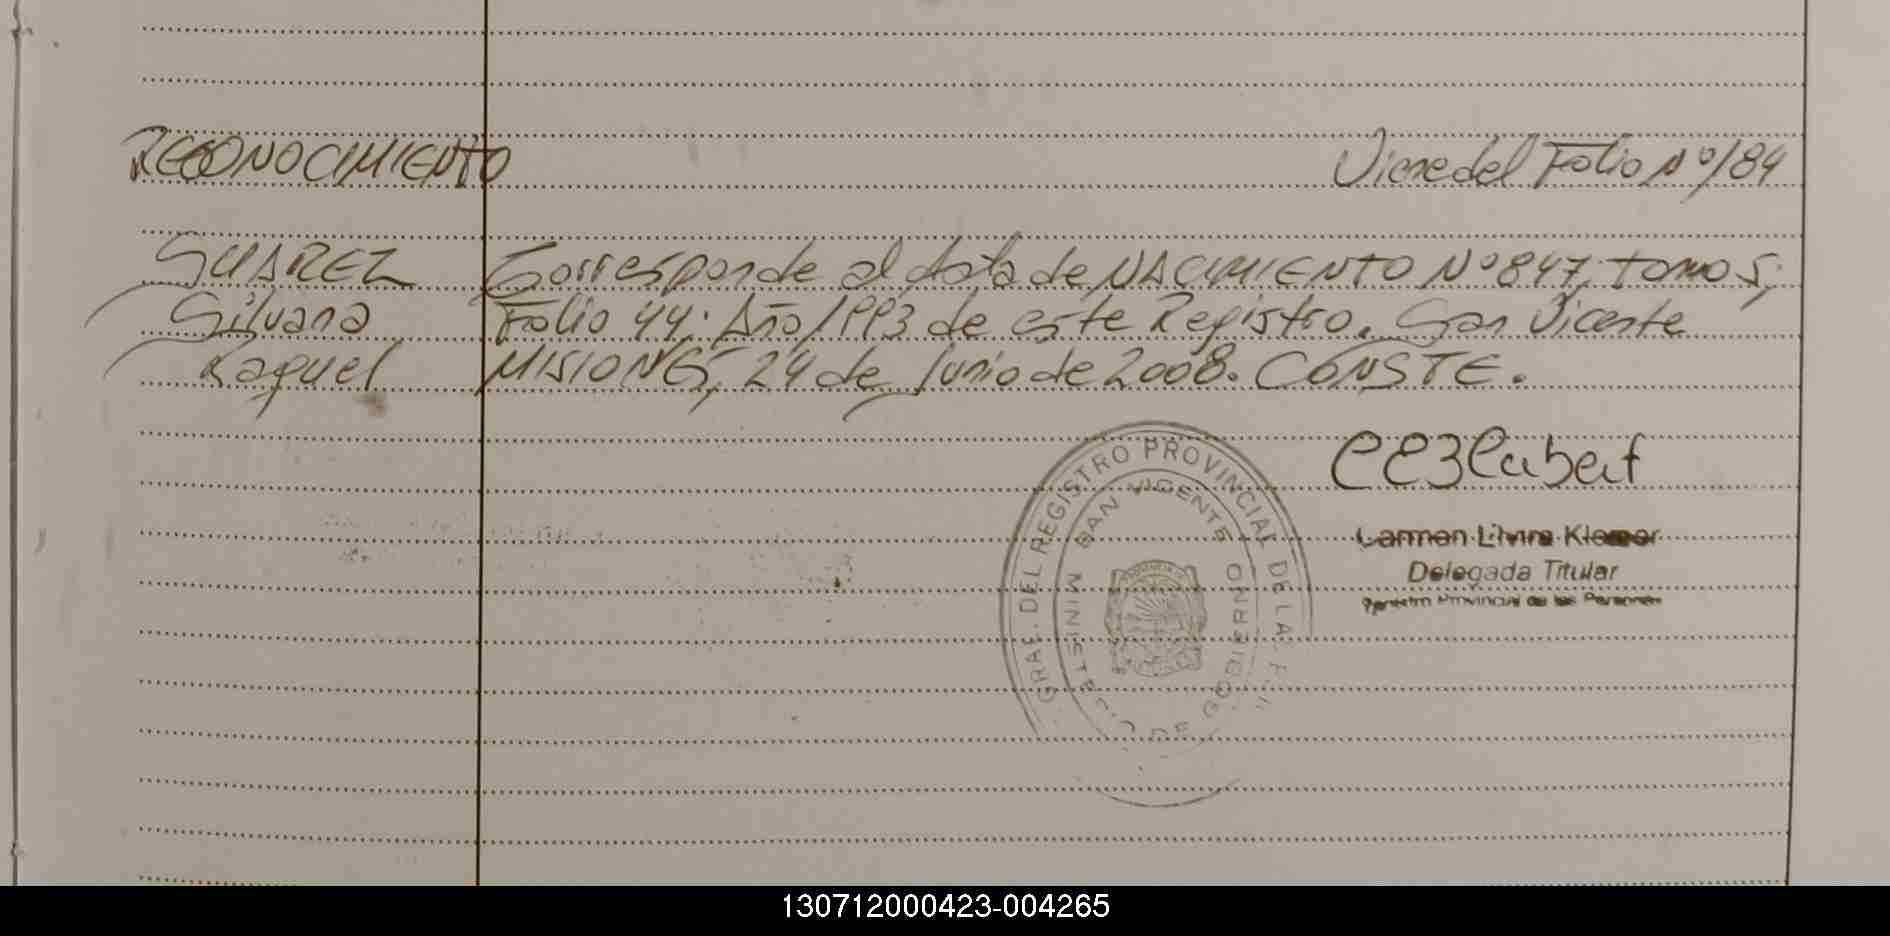 RECONOCIMIENTO Viene del Folio Nº 184
SUAREZ Corresponde al Acta de NACIMIENTO Nº 847, Tomo 5,
Silvana Folio 44. Año 1993 de este Registro. San Vicente
Raquel MISIONES, 24 de Junio de 2008. CONSTE.
GRAL. DEL REGISTRO PROVINCIAL DE LA
SAN VICENTE
MINISTE DE GOBIERNO
Carmen
Delegada Titular
Registro Provincial de las Personas
130712000423-004265